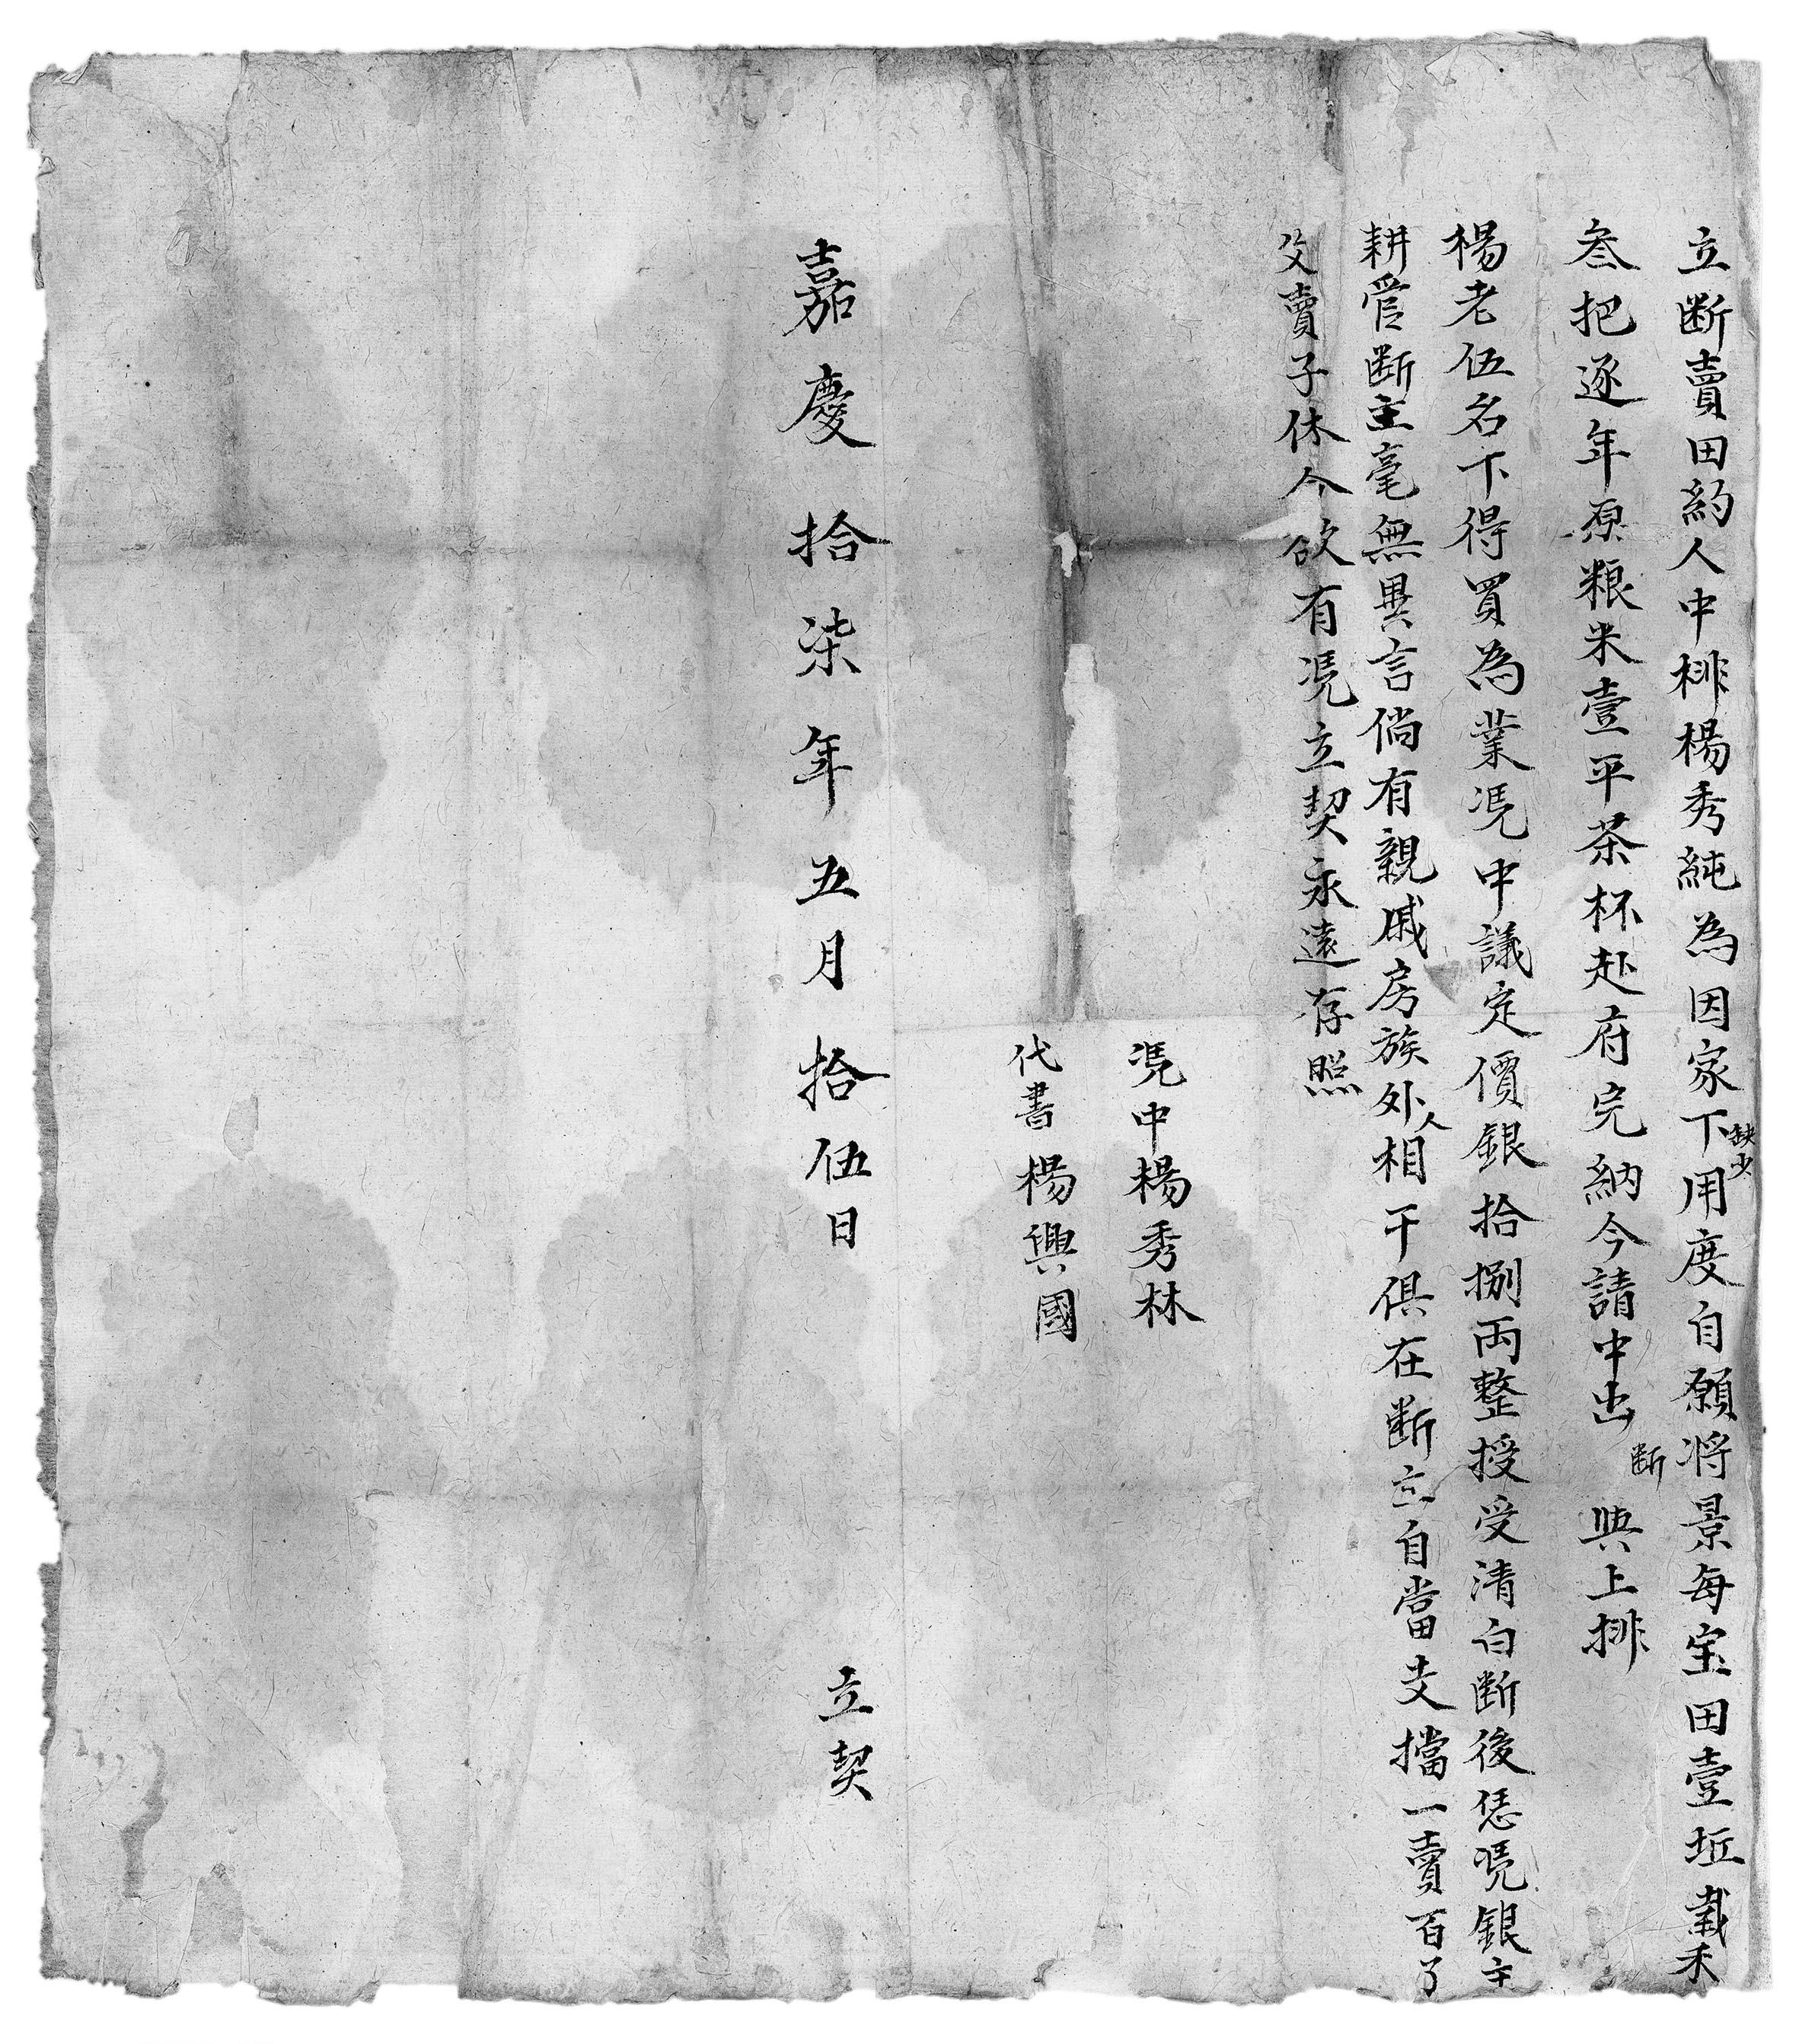 立断賣田約人中排楊秀純為因家下缺少用度自願将景每宝田壹坵載禾
叁把逐年原粮米壹平茶杯赴府完納今請中出断與上排
楊老伍名下得買為業凴中議定價銀拾捌両整授受清白断後恁凴銀主
耕管断主毫無異言倘有親戚房族外人相干俱在断立自當支擋一賣百了
父賣子休今欲有凴立契永遠存照
凴中楊秀林
代書楊興國
嘉慶拾柒年五月拾伍日
立契